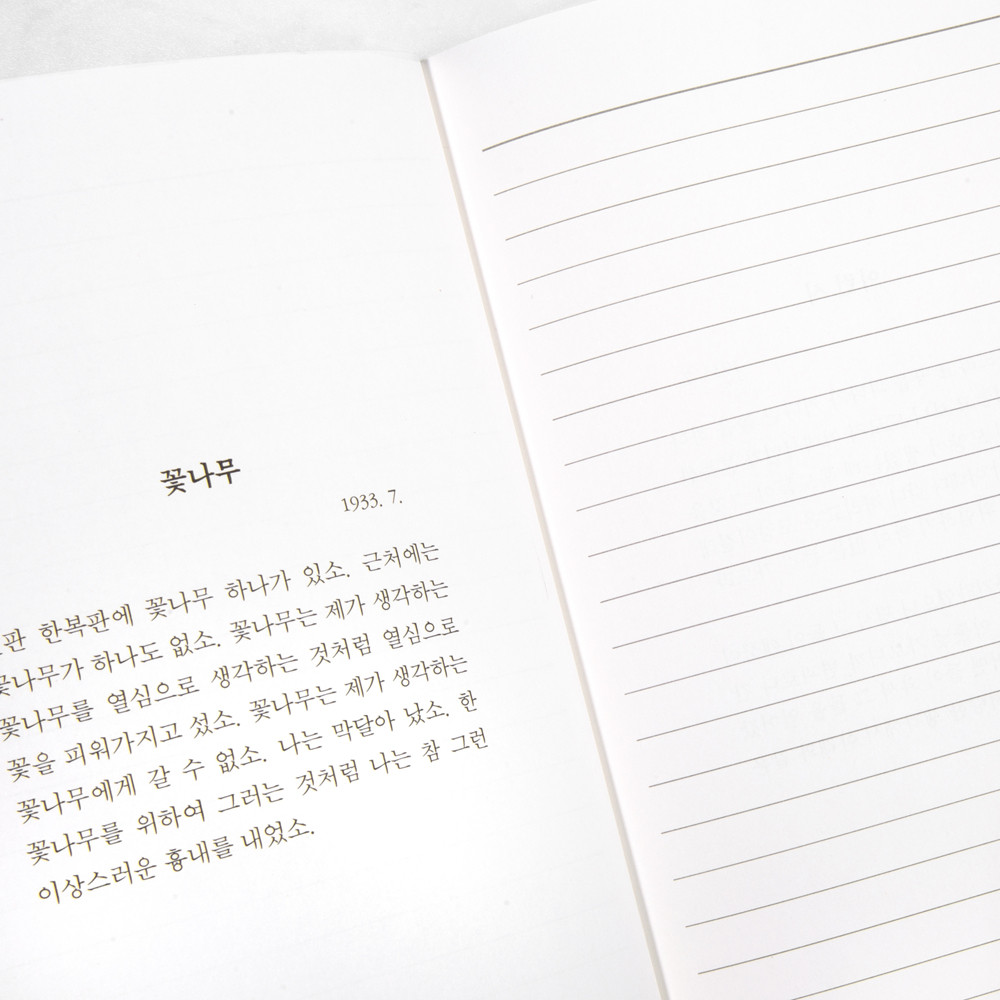 꽃나무
1933. 7.
판 한복판에 꽃나무 하나가 있소. 근처에는
꽃나무가 하나도 없소. 꽃나무는 제가 생각하는
꽃나무를 열심으로 생각하는 것처럼 열심으로
꽃을 피워가지고 섰소. 꽃나무는 제가 생각하는
꽃나무에게 갈 수 없소. 나는 막달아 났소. 한
꽃나무를 위하여 그러는 것처럼 나는 참 그런
이상스러운 흉내를 내었소.